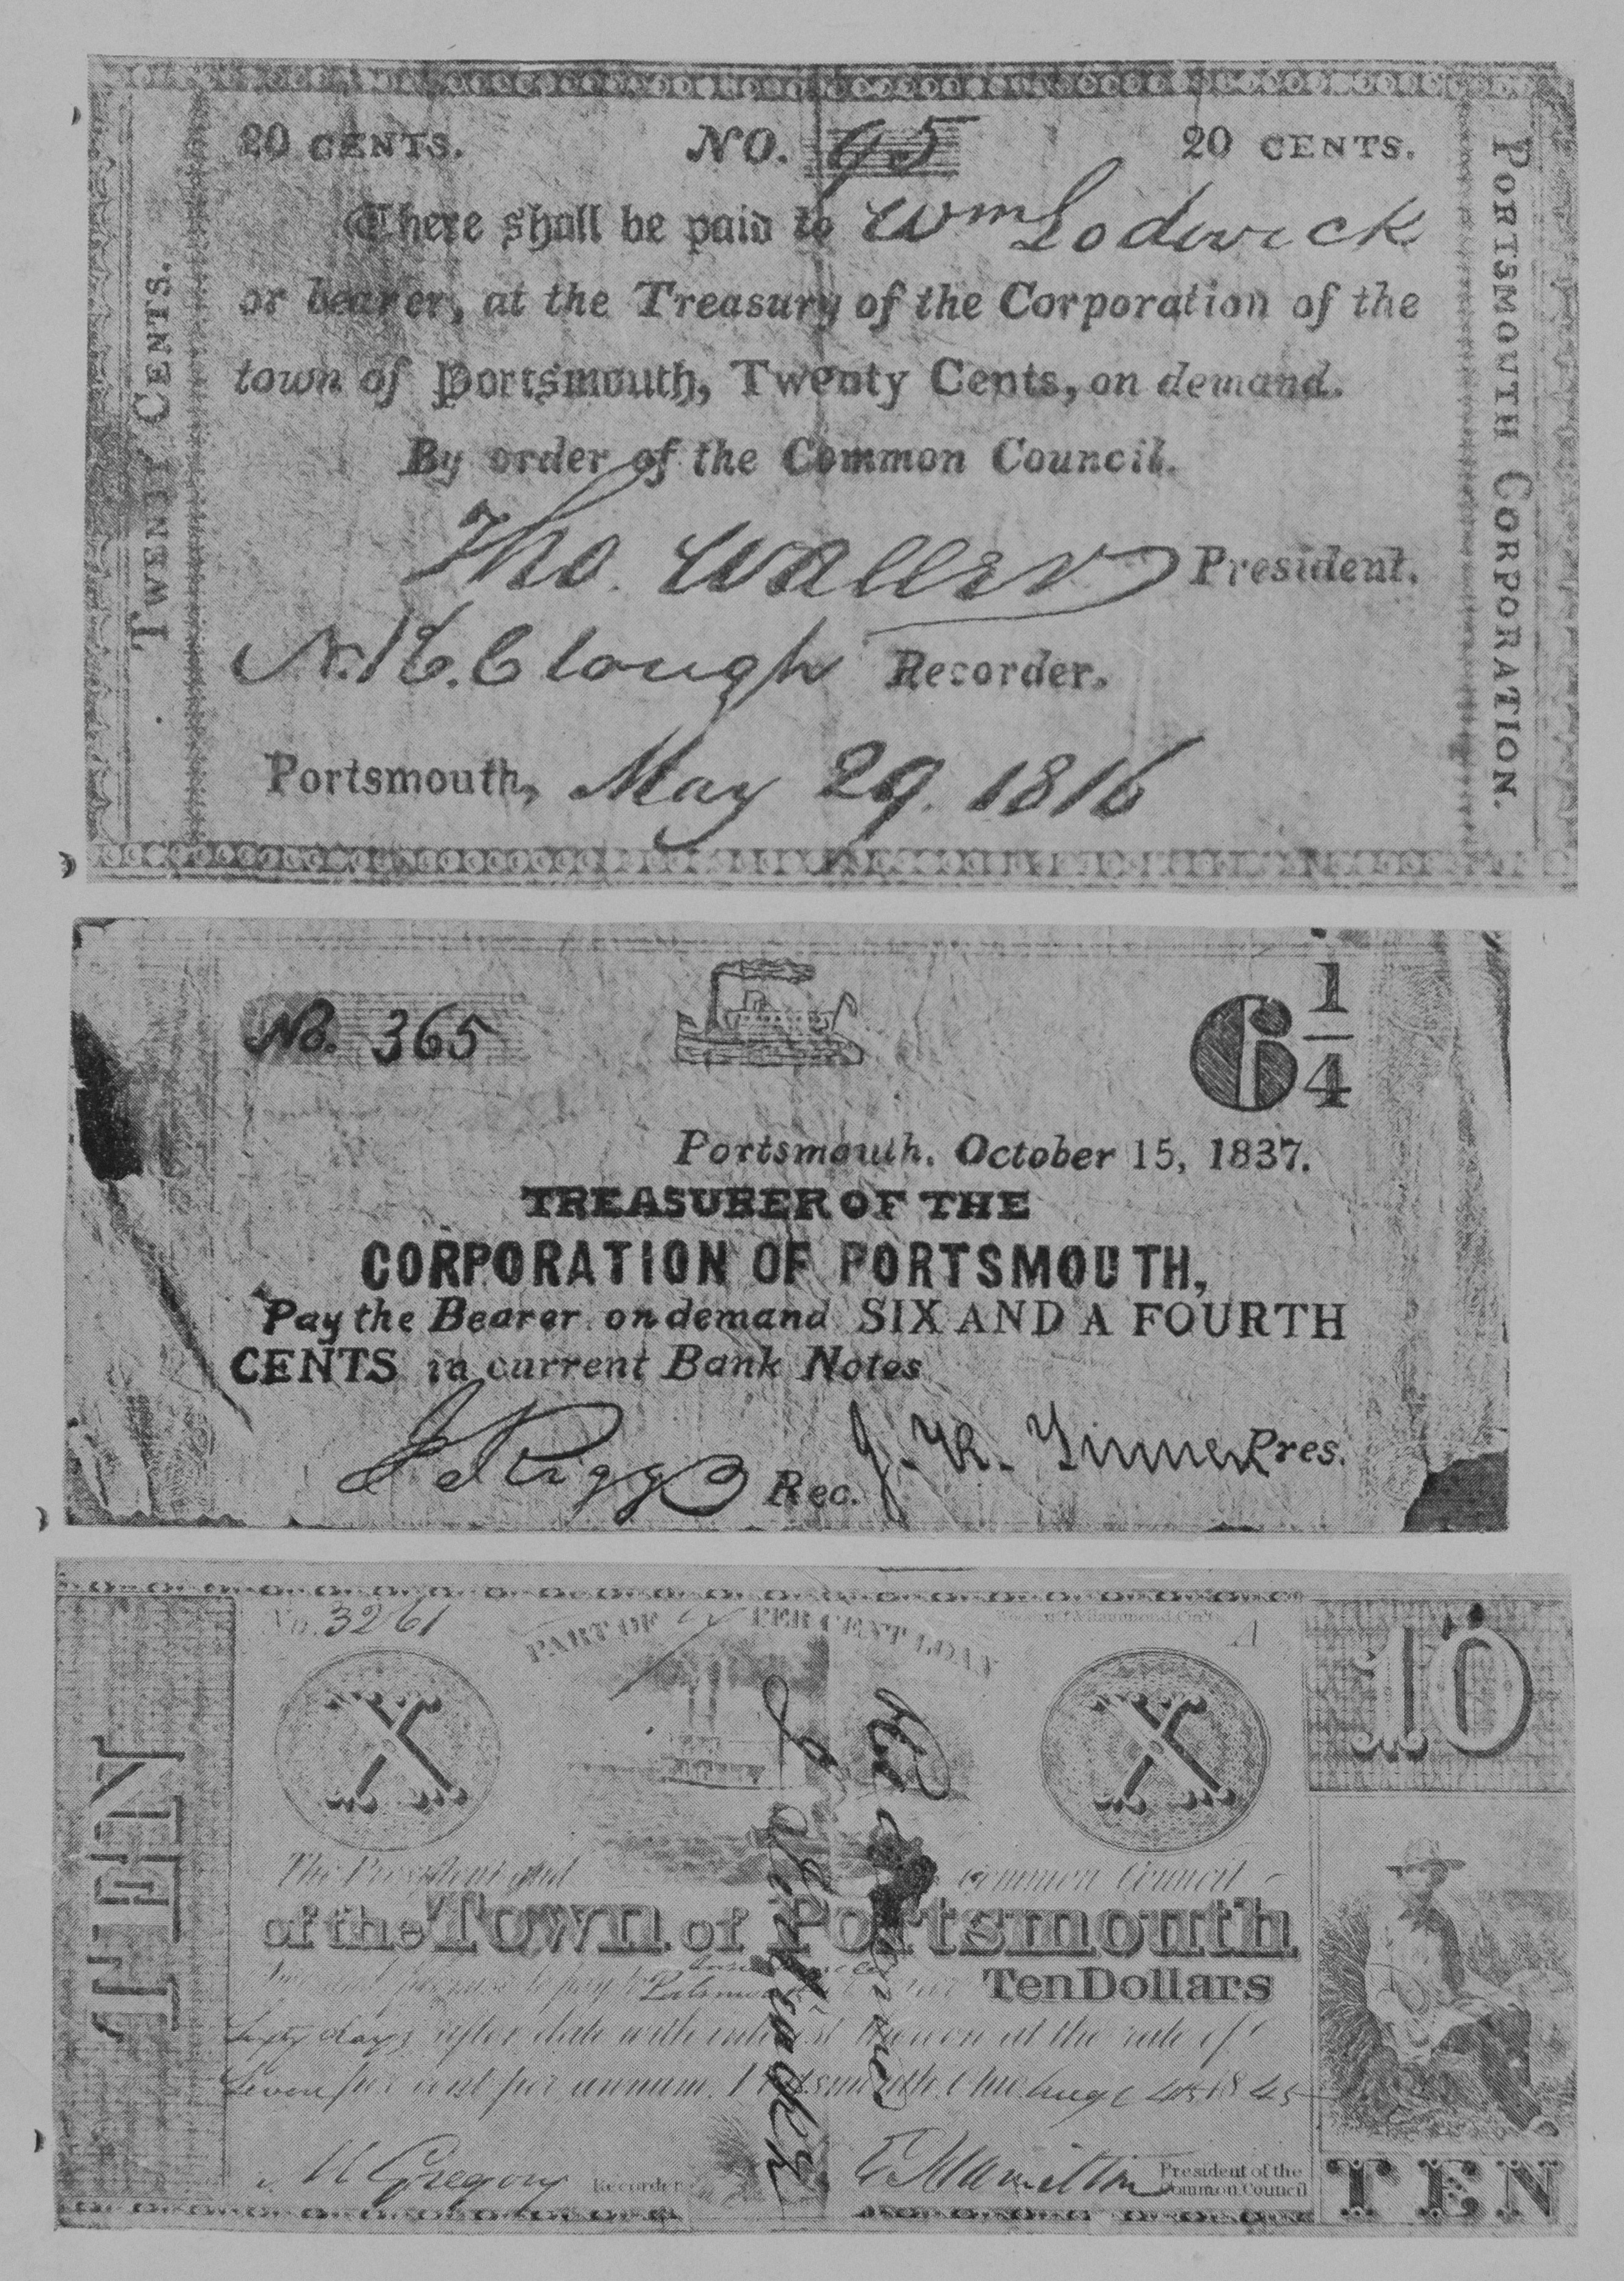 20 CENTS. NO. 95 20 CENTS.
There shall be paid to Wm Lodwick
or bearer, at the Treasury of the Corporation of the
town of Portsmouth, Twenty Cents, on demand.
By order of the Common Council.
Tho. Waller President.
N.K. Clough Recorder.
Portsmouth, May 29. 1816
TWENTY CENTS.
PORTSMOUTH CORPORATION.
No. 365
6 1/4
Portsmouth, October 15, 1837.
TREASURER OF THE
CORPORATION OF PORTSMOUTH,
Pay the Bearer on demand SIX AND A FOURTH
CENTS in current Bank Notes
Riggs Rec. J. R. Turner Pres.
TEN
No. 3261
PART OF PER CENT LOAN
A
10
X X
The President and Common Council
of the Town of Portsmouth
promise to pay Ten Dollars
days after date with interest thereon at the rate of
Seven per cent per annum. Portsmouth, Ohio, 1845
Gregory Recorder
Hamilton President of the
Common Council
TEN